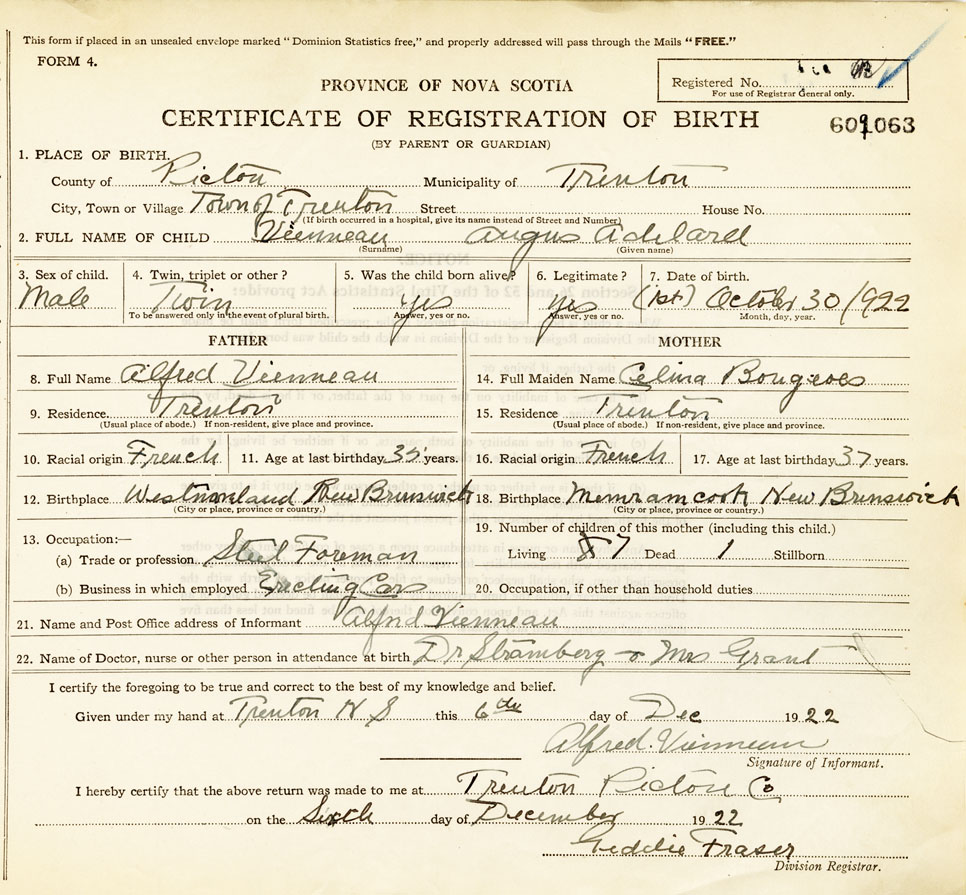 This form if placed in an unsealed envelope marked "Dominion Statistics free," and properly addressed will pass through the Mails "FREE."
FORM 4.
Registered No.
For use of Registrar General only.
PROVINCE OF NOVA SCOTIA
CERTIFICATE OF REGISTRATION OF BIRTH
(BY PARENT OR GUARDIAN)
1. PLACE OF BIRTH.
County of Picton Municipality of Trenton
City, Town or Village Town of Trenton Street House No.
(If birth occurred in a hospital, give its name instead of Street and Number)
2. FULL NAME OF CHILD Vienneau Angus Adelard
(Surname) (Given name)
3. Sex of child. 4. Twin, triplet or other? 5. Was the child born alive? 6. Legitimate? 7. Date of birth.
Male Twin yes yes (1st) October 30/1922
To be answered only in the event of plural birth. Answer, yes or no. Answer, yes or no. Month, day, year.
FATHER MOTHER
8. Full Name Alfred Vienneau 14. Full Maiden Name Celina
9. Residence. Trenton 15. Residence Trenton
(Usual place of abode.) If non-resident, give place and province. (Usual place of abode.) If non-resident, give place and province.
10. Racial origin French 11. Age at last birthday 35 years. 16. Racial origin French 17. Age at last birthday 37 years.
12. Birthplace Westmoreland New Brunswick 18. Birthplace Memramcook New Brunswick
(City or place, province or country.) (City or place, province or country.)
13. Occupation:— 19. Number of children of this mother (including this child.)
(a) Trade or profession Steel Foreman Living 7 Dead 1 Stillborn
(b) Business in which employed Erecting Cars 20. Occupation, if other than household duties
21. Name and Post Office address of Informant Alfred Vienneau
22. Name of Doctor, nurse or other person in attendance at birth Dr Stramberg & Mrs Grant
I certify the foregoing to be true and correct to the best of my knowledge and belief.
Given under my hand at Trenton N S this 6th day of Dec 1922
Alfred. Vienneau
Signature of Informant.
I hereby certify that the above return was made to me at Trenton Picton Co
on the Sixth day of December 1922
Geddie Fraser
Division Registrar.